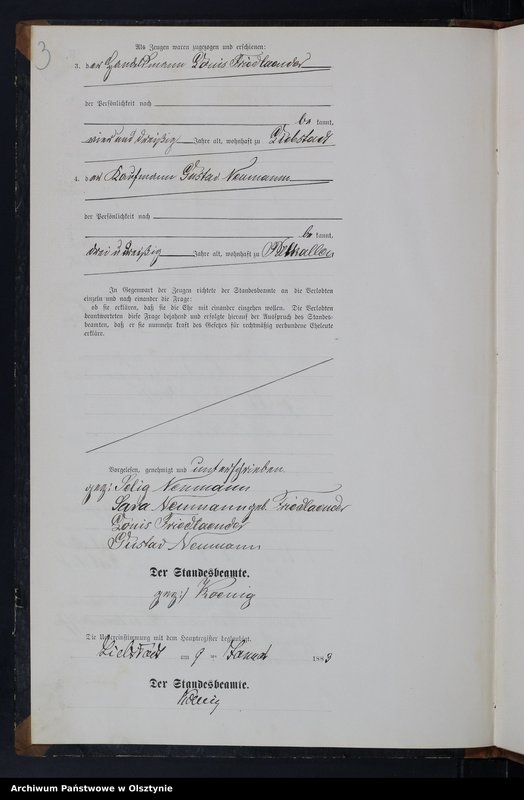 3
Als Zeugen waren zugezogen und erschienen:
3. der Handelsmann Louis Friedlaender
der Persönlichkeit nach
be kannt,
vier und dreißig Jahre alt, wohnhaft zu Liebstadt
4. der Kaufmann Gustav Neumann
der Persönlichkeit nach
be kannt,
drei u. dreißig Jahre alt, wohnhaft zu Pillkallen
In Gegenwart der Zeugen richtete der Standesbeamte an die Verlobten
einzeln und nach einander die Frage:
ob sie erklären, daß sie die Ehe mit einander eingehen wollen. Die Verlobten
beantworteten diese Frage bejahend und erfolgte hierauf der Ausspruch des Standes-
beamten, daß er sie nunmehr kraft des Gesetzes für rechtmäßig verbundene Eheleute
erkläre.
Vorgelesen, genehmigt und unterschrieben
gez: Selig Neumann
Sara Neumann geb. Friedlaender
Louis Friedlaender
Gustav Neumann
Der Standesbeamte.
gez:/ Koenig
Die Uebereinstimmung mit dem Hauptregister beglaubigt.
Liebstadt am 9 ten Januar 1883
Der Standesbeamte.
Koenig
Archiwum Państwowe w Olsztynie